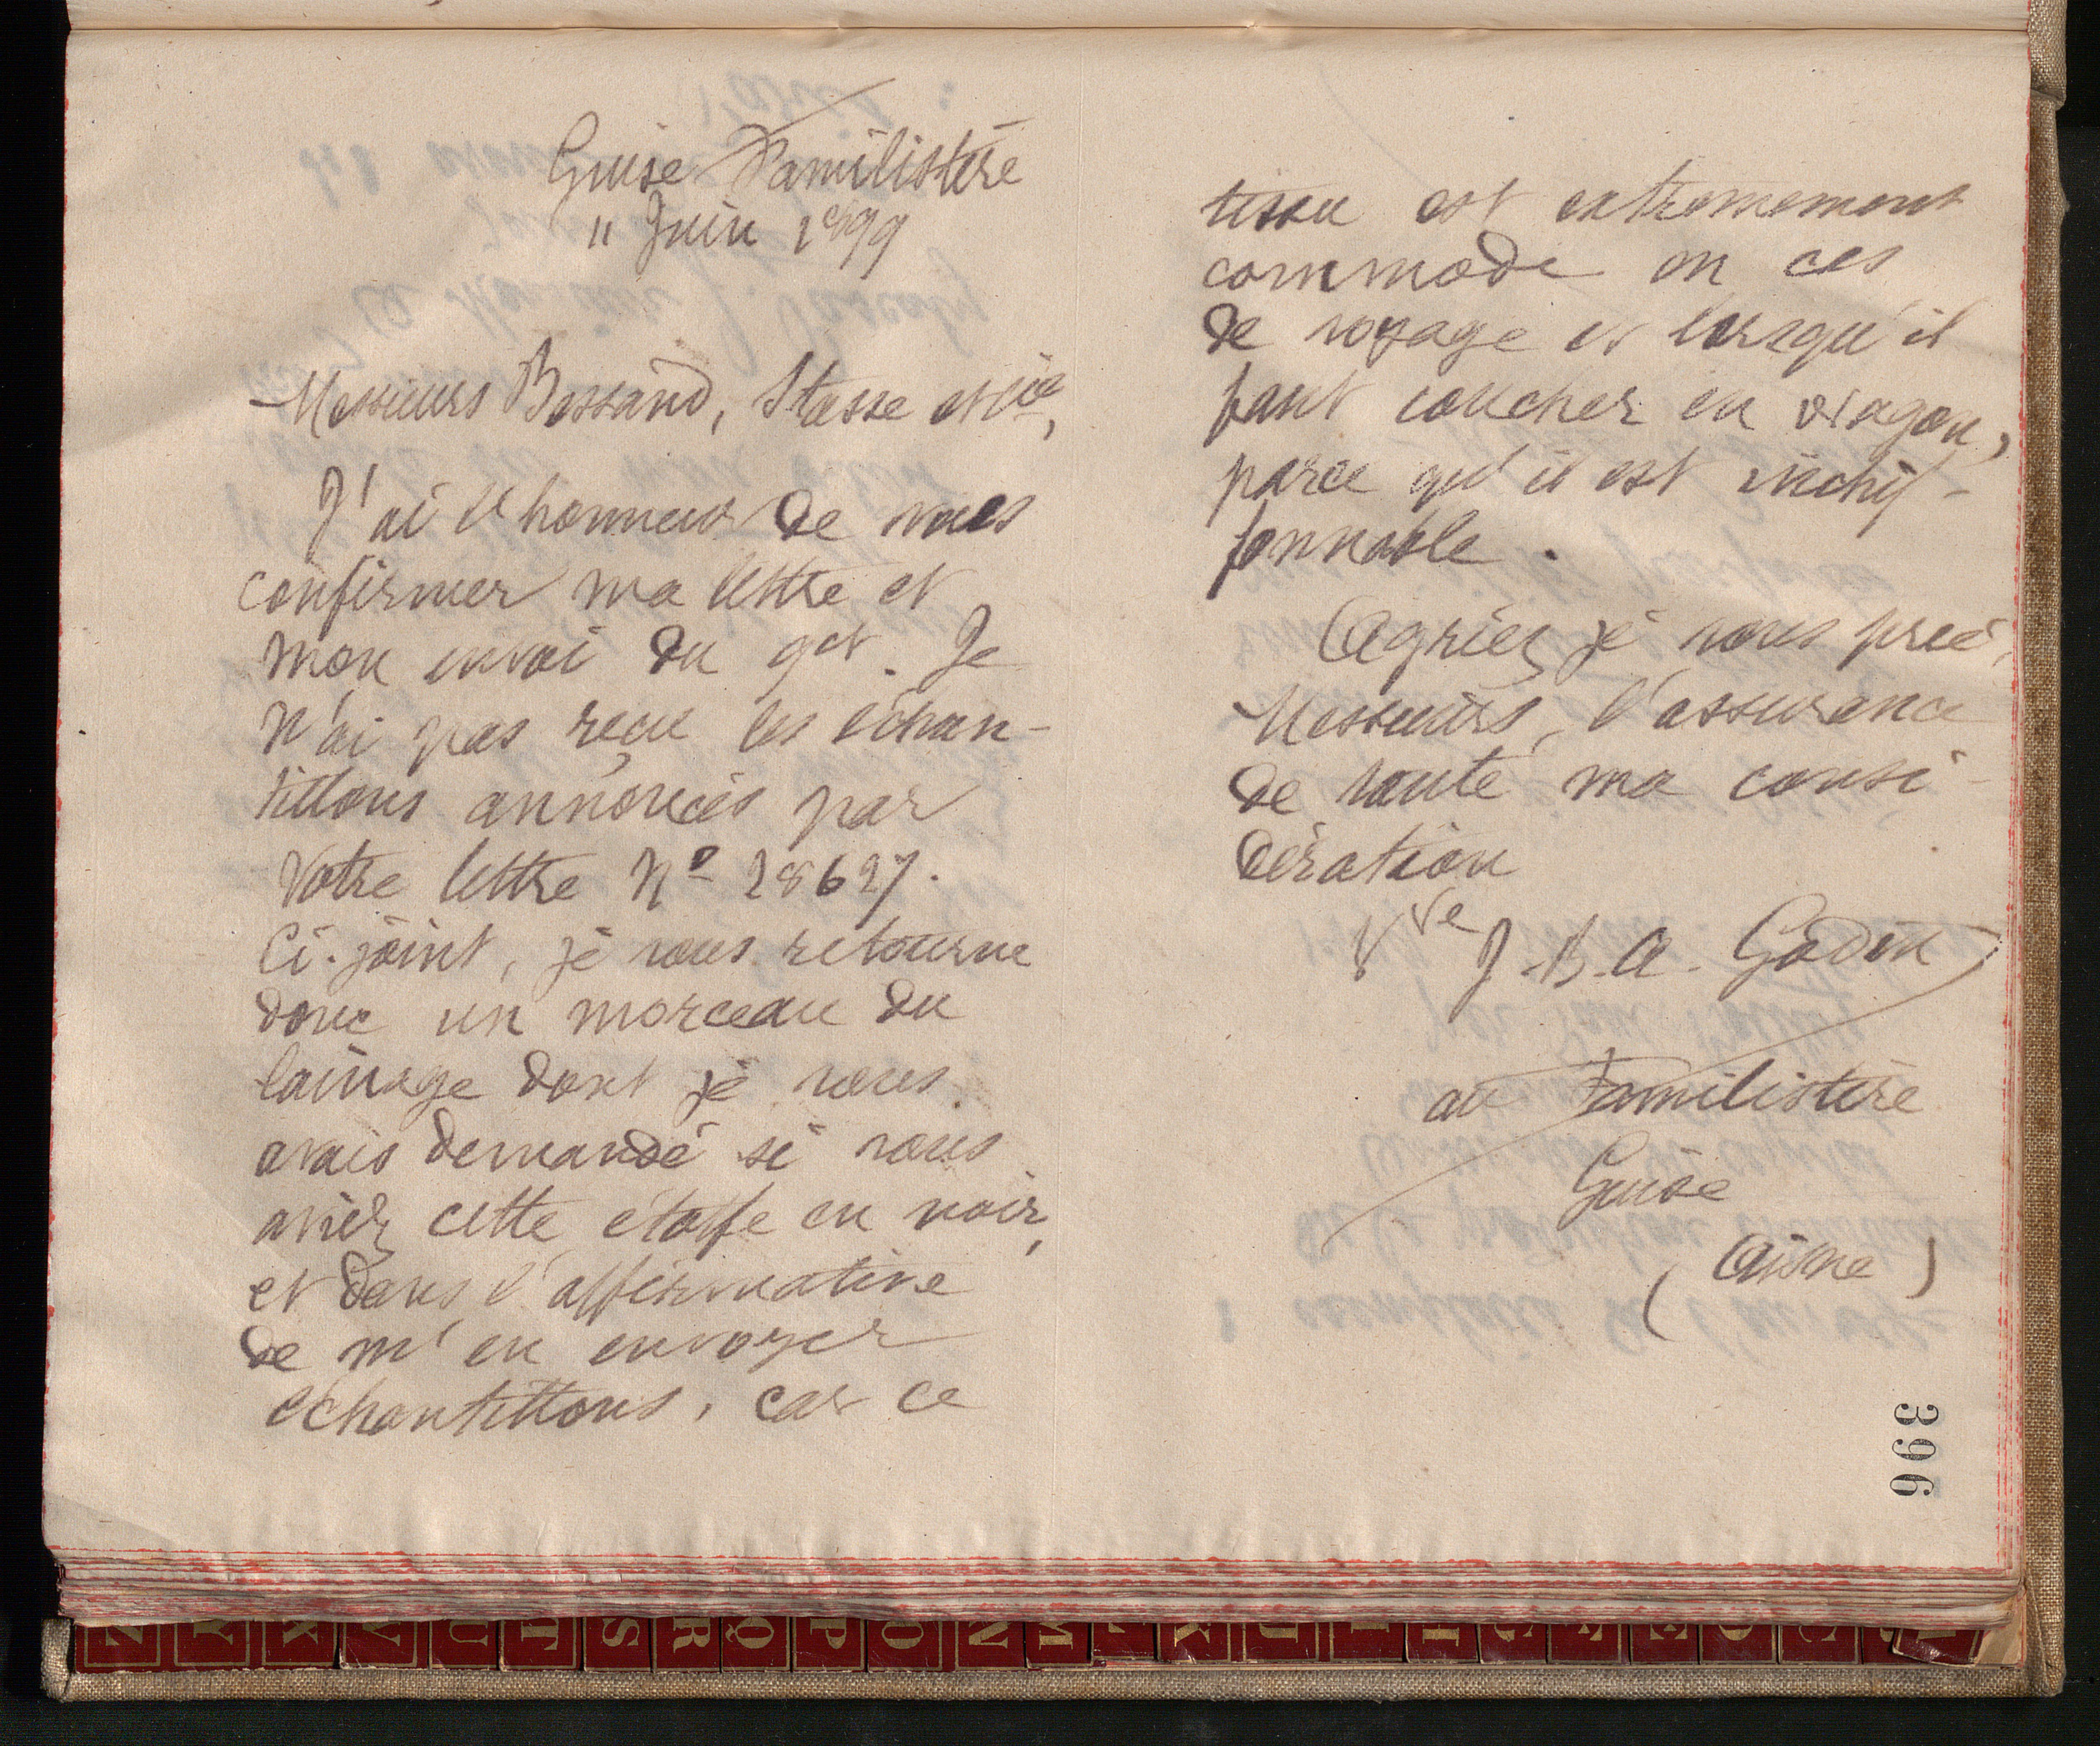 Guise Familistère
11 Juin 1899
Messieurs Bossand, Stasse et Cie,
J'ai l'honneur de vous
confirmer ma lettre et
mon envoi du 9 ct. Je
n'ai pas reçu les échan-
tillons annoncés par
votre lettre No 28627.
Ci-joint, je vous retourne
donc un morceau du
lainage dont je vous
avais demandé si vous
aviez cette étoffe en noir,
et dans l'affirmative
de m'en envoyer
échantillons, car ce
tissu est extremement
commode en ces
de voyage et lorsqu'il
faut coucher en wagon,
parce qu'il est inchif-
fonnable.
Agréez je vous prie,
Messieurs, l'assurance
de toute ma consi-
dération
Vve J-B-A- Godin
au Familistère
Guise
(Aisne)
396
Z Y X V U T S R Q P O N M